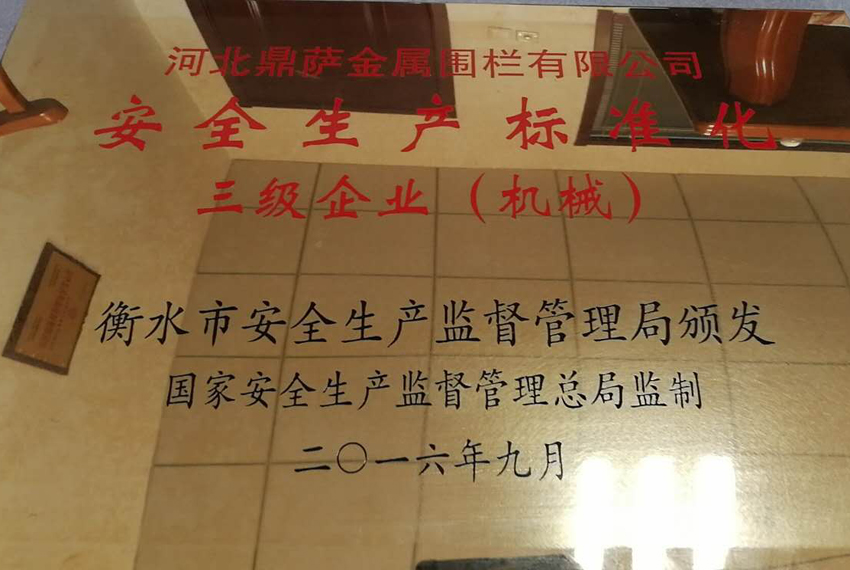 河北鼎萨金属围栏有限公司
安全生产标准化
三级企业（机械）
衡水市安全生产监督管理局颁发
国家安全生产监督管理总局监制
二〇一六年九月